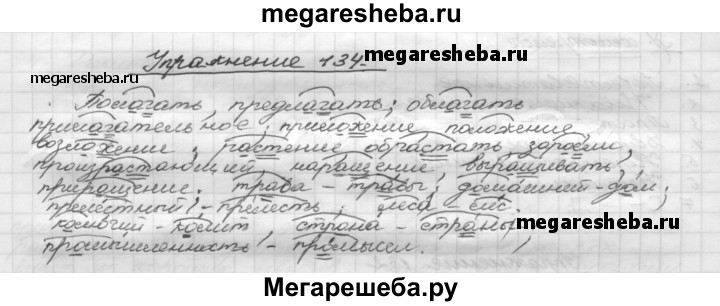 megaresheba.ru
Упражнение 134.
megaresheba.ru
megaresheba.ru
Полагать, предлагать, облагать
прилагательное, приложение положение
возложение, растение обрастать заросли,
произрастающий наращение выращивать,
приращение. трава - травы; домашний - дом;
прелестный - прелесть; леса
колючий - колит, страна - страны,
megaresheba.ru
промышленность - промысел.
Мегарешеба.ру